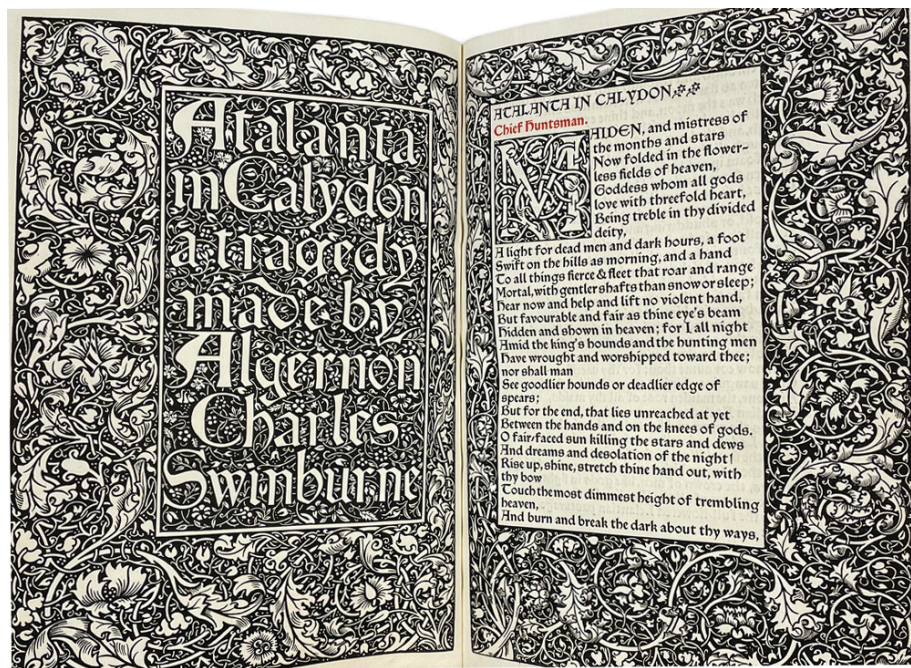 Atalanta
in Calydon
a tragedy
made by
Algernon
Charles
Swinburne
ATALANTA IN CALYDON
Chief Huntsman.
MAIDEN, and mistress of
the months and stars
Now folded in the flower-
less fields of heaven,
Goddess whom all gods
love with threefold heart,
Being treble in thy divided
deity,
A light for dead men and dark hours, a foot
Swift on the hills as morning, and a hand
To all things fierce & fleet that roar and range
Mortal, with gentler shafts than snow or sleep;
Hear now and help and lift no violent hand,
But favourable and fair as thine eye's beam
Hidden and shown in heaven; for I all night
Amid the king's hounds and the hunting men
Have wrought and worshipped toward thee;
nor shall man
See goodlier hounds or deadlier edge of
spears;
But for the end, that lies unreached at yet
Between the hands and on the knees of gods.
O fair-faced sun killing the stars and dews
And dreams and desolation of the night!
Rise up, shine, stretch thine hand out, with
thy bow
Touch the most dimmest height of trembling
heaven,
And burn and break the dark about thy ways,